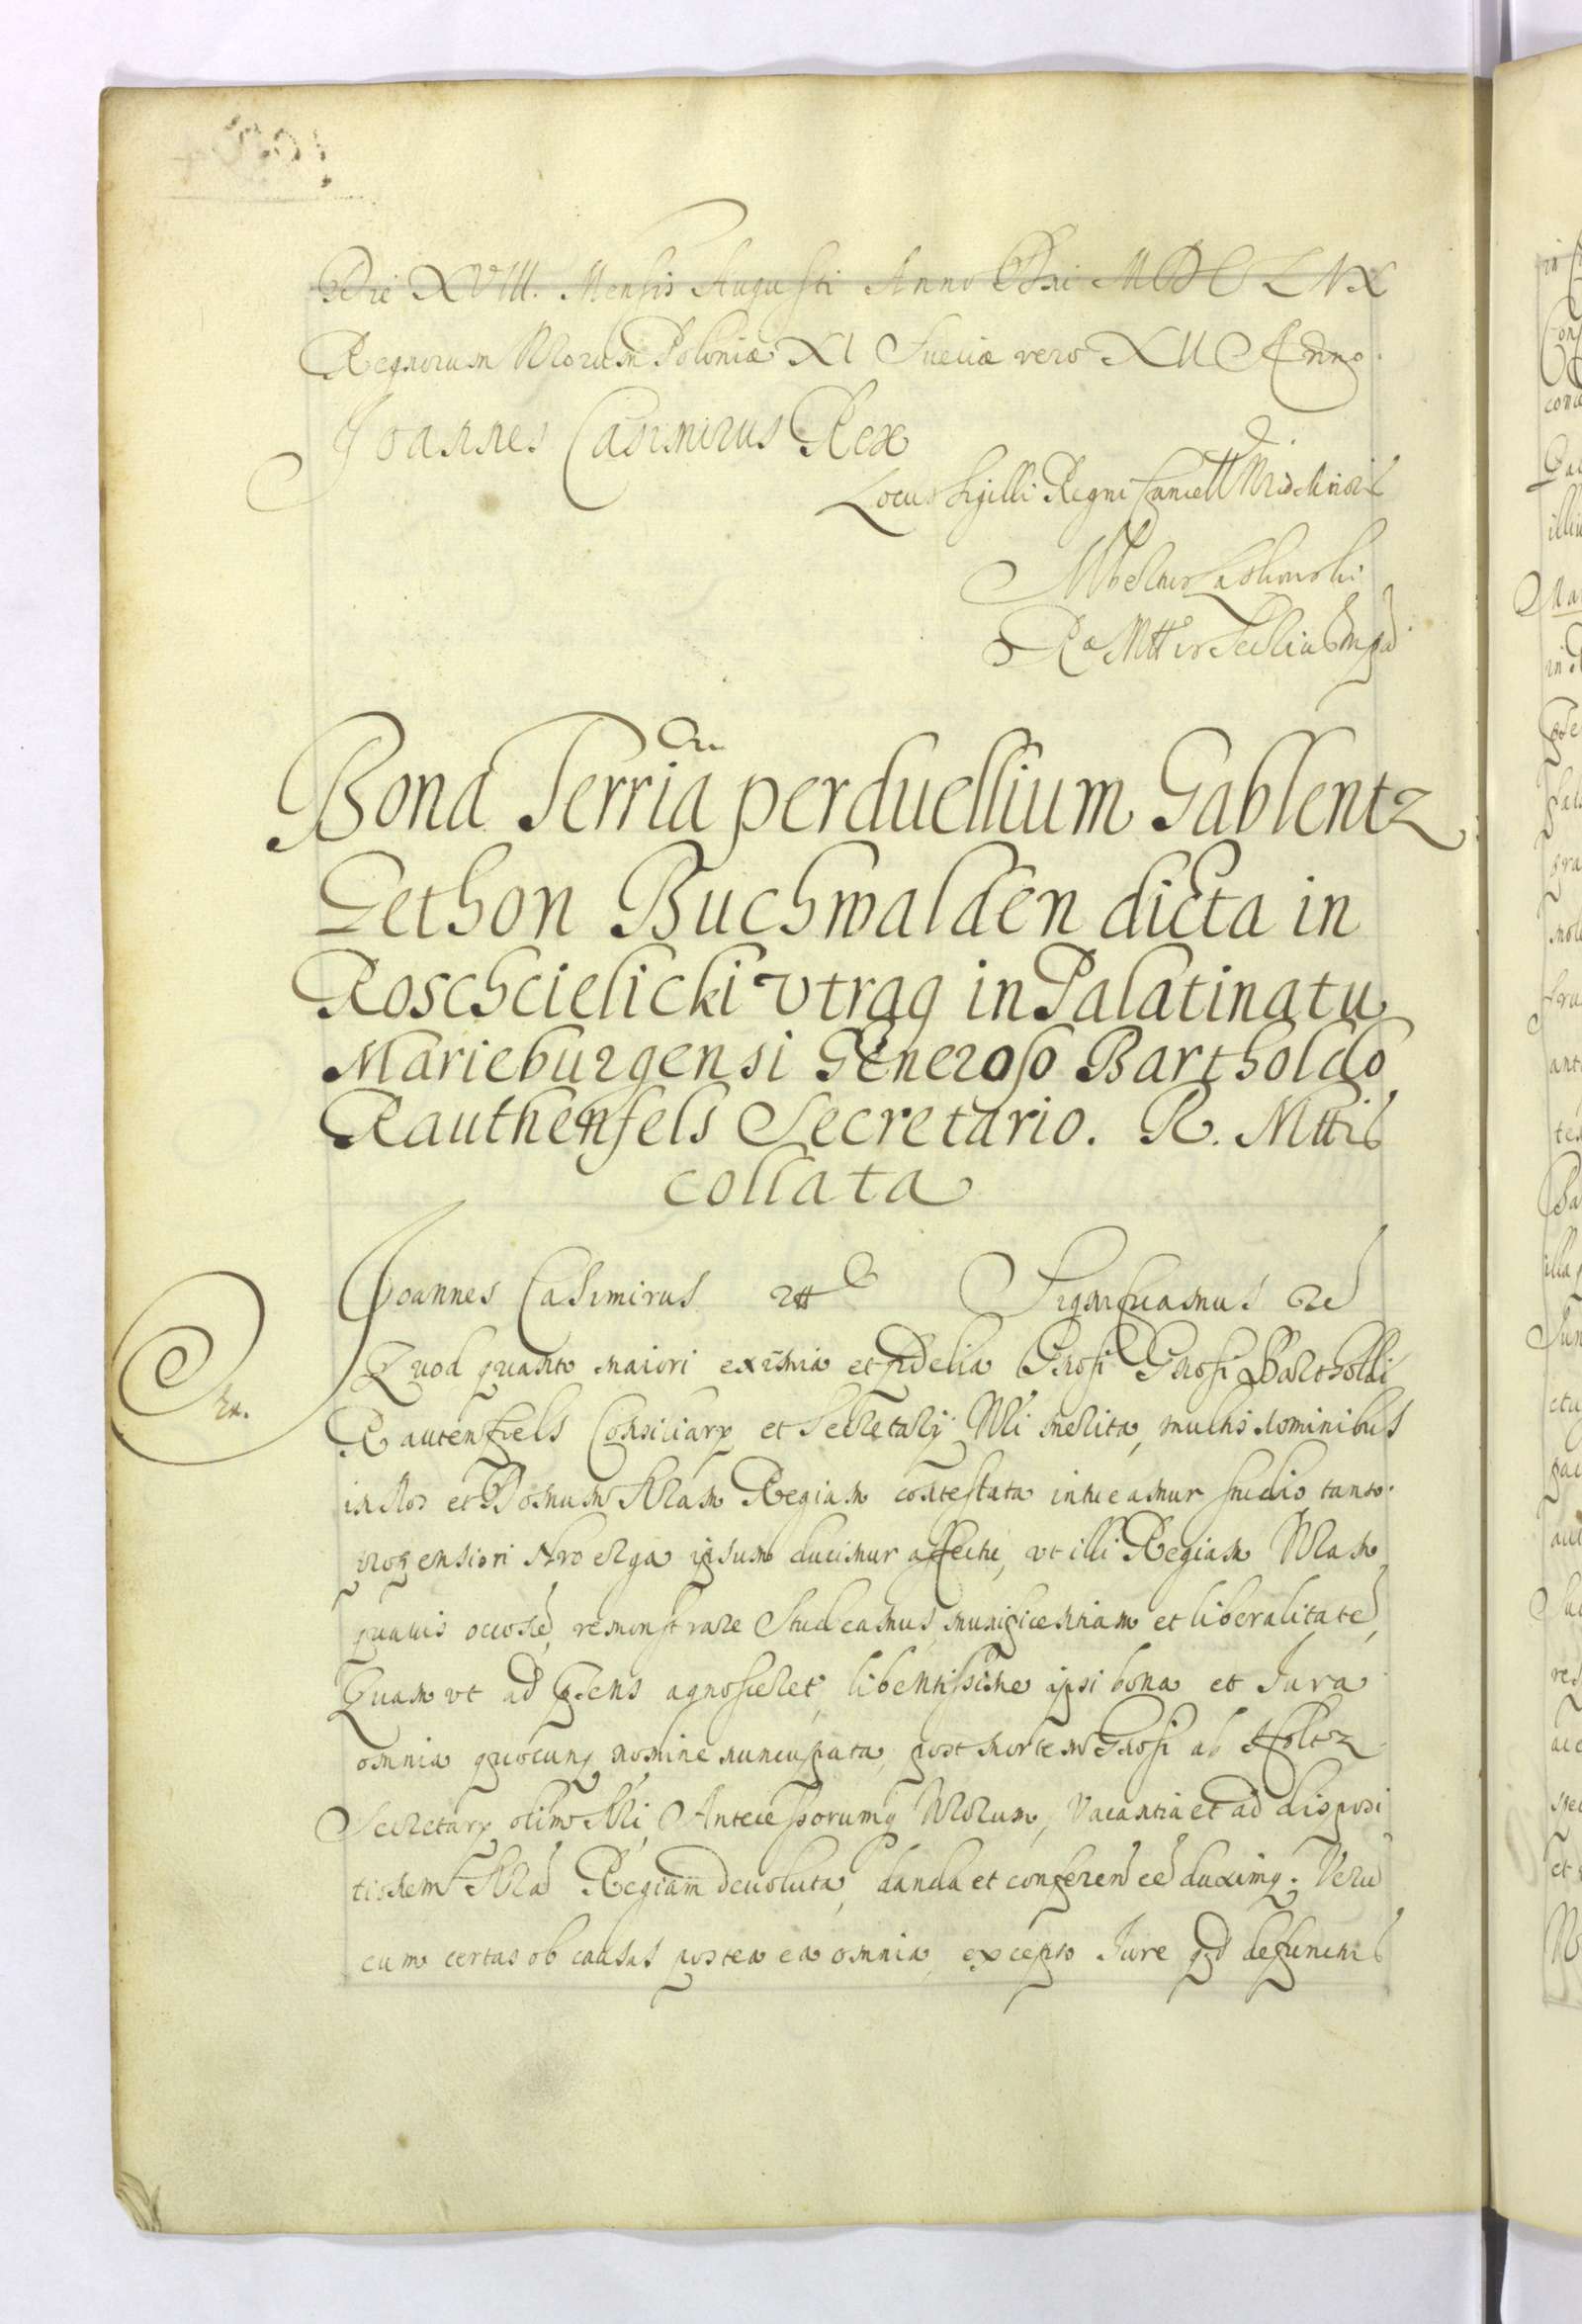 Die XVIII. Mensis Augusti Anno Dni MDCLIX
Regnorum Nrorum Poloniæ XI Sueciæ vero XII Anno.
Joannes Casimirus Rex
Locus Sigilli Regni Cancell Minoris
Albertus Laskowski
Ra Mttis Secrius mpa
Bona Terria perduellium Gablentz
Gethon Buchwalden dicta in
Roschcielicki utraq in Palatinatu
Marieburgensi Generoso Bartholdo
Rauthenfels Secretario. R. Mttis
collata
Joannes Casimirus ett Significamus
Quod quanto maiori eximia et fidelia Gnosi Gnosi Bartholdi
Rautenfels Consiliary et Secretary Nri merita, multis nominibus
in Nos et Domum Nram Regiam contestata intueamur studio tanto
propensiori Nro erga ipsum ducimur affectu, ut illi Regiam Nram
quavis occone remonstrare Studeamus, munificentiam et liberalitate,
Quam ut ad psens agnosceret, libentissime ipsi bona et Jura
omnia quocunq nomine nuncupata, post mortem Gnosi ab Holtz
Secretary olim Nri, Antecessorumq Nrorum, Vacantia et ad disposi
tionem Nra Regiam devoluta, danda et conferen ee duximq. Veru
cum certas ob causas postea ea omnia, excepto Jure qd defunctus